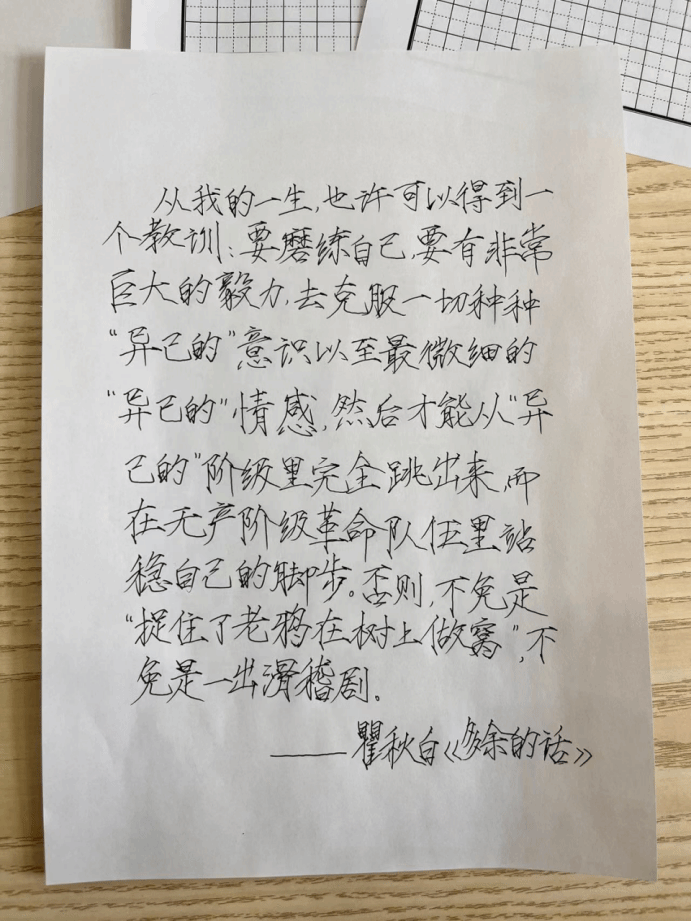 从我的一生,也许可以得到一
个教训:要磨练自己,要有非常
巨大的毅力,去克服一切种种
“异己的”意识以至最微细的
“异己的”情感,然后才能从“异
己的”阶级里完全跳出来,而
在无产阶级革命队伍里站
稳自己的脚步。否则,不免是
“捉住了老鸦在树上做窝”,不
免是一出滑稽剧。
——瞿秋白《多余的话》